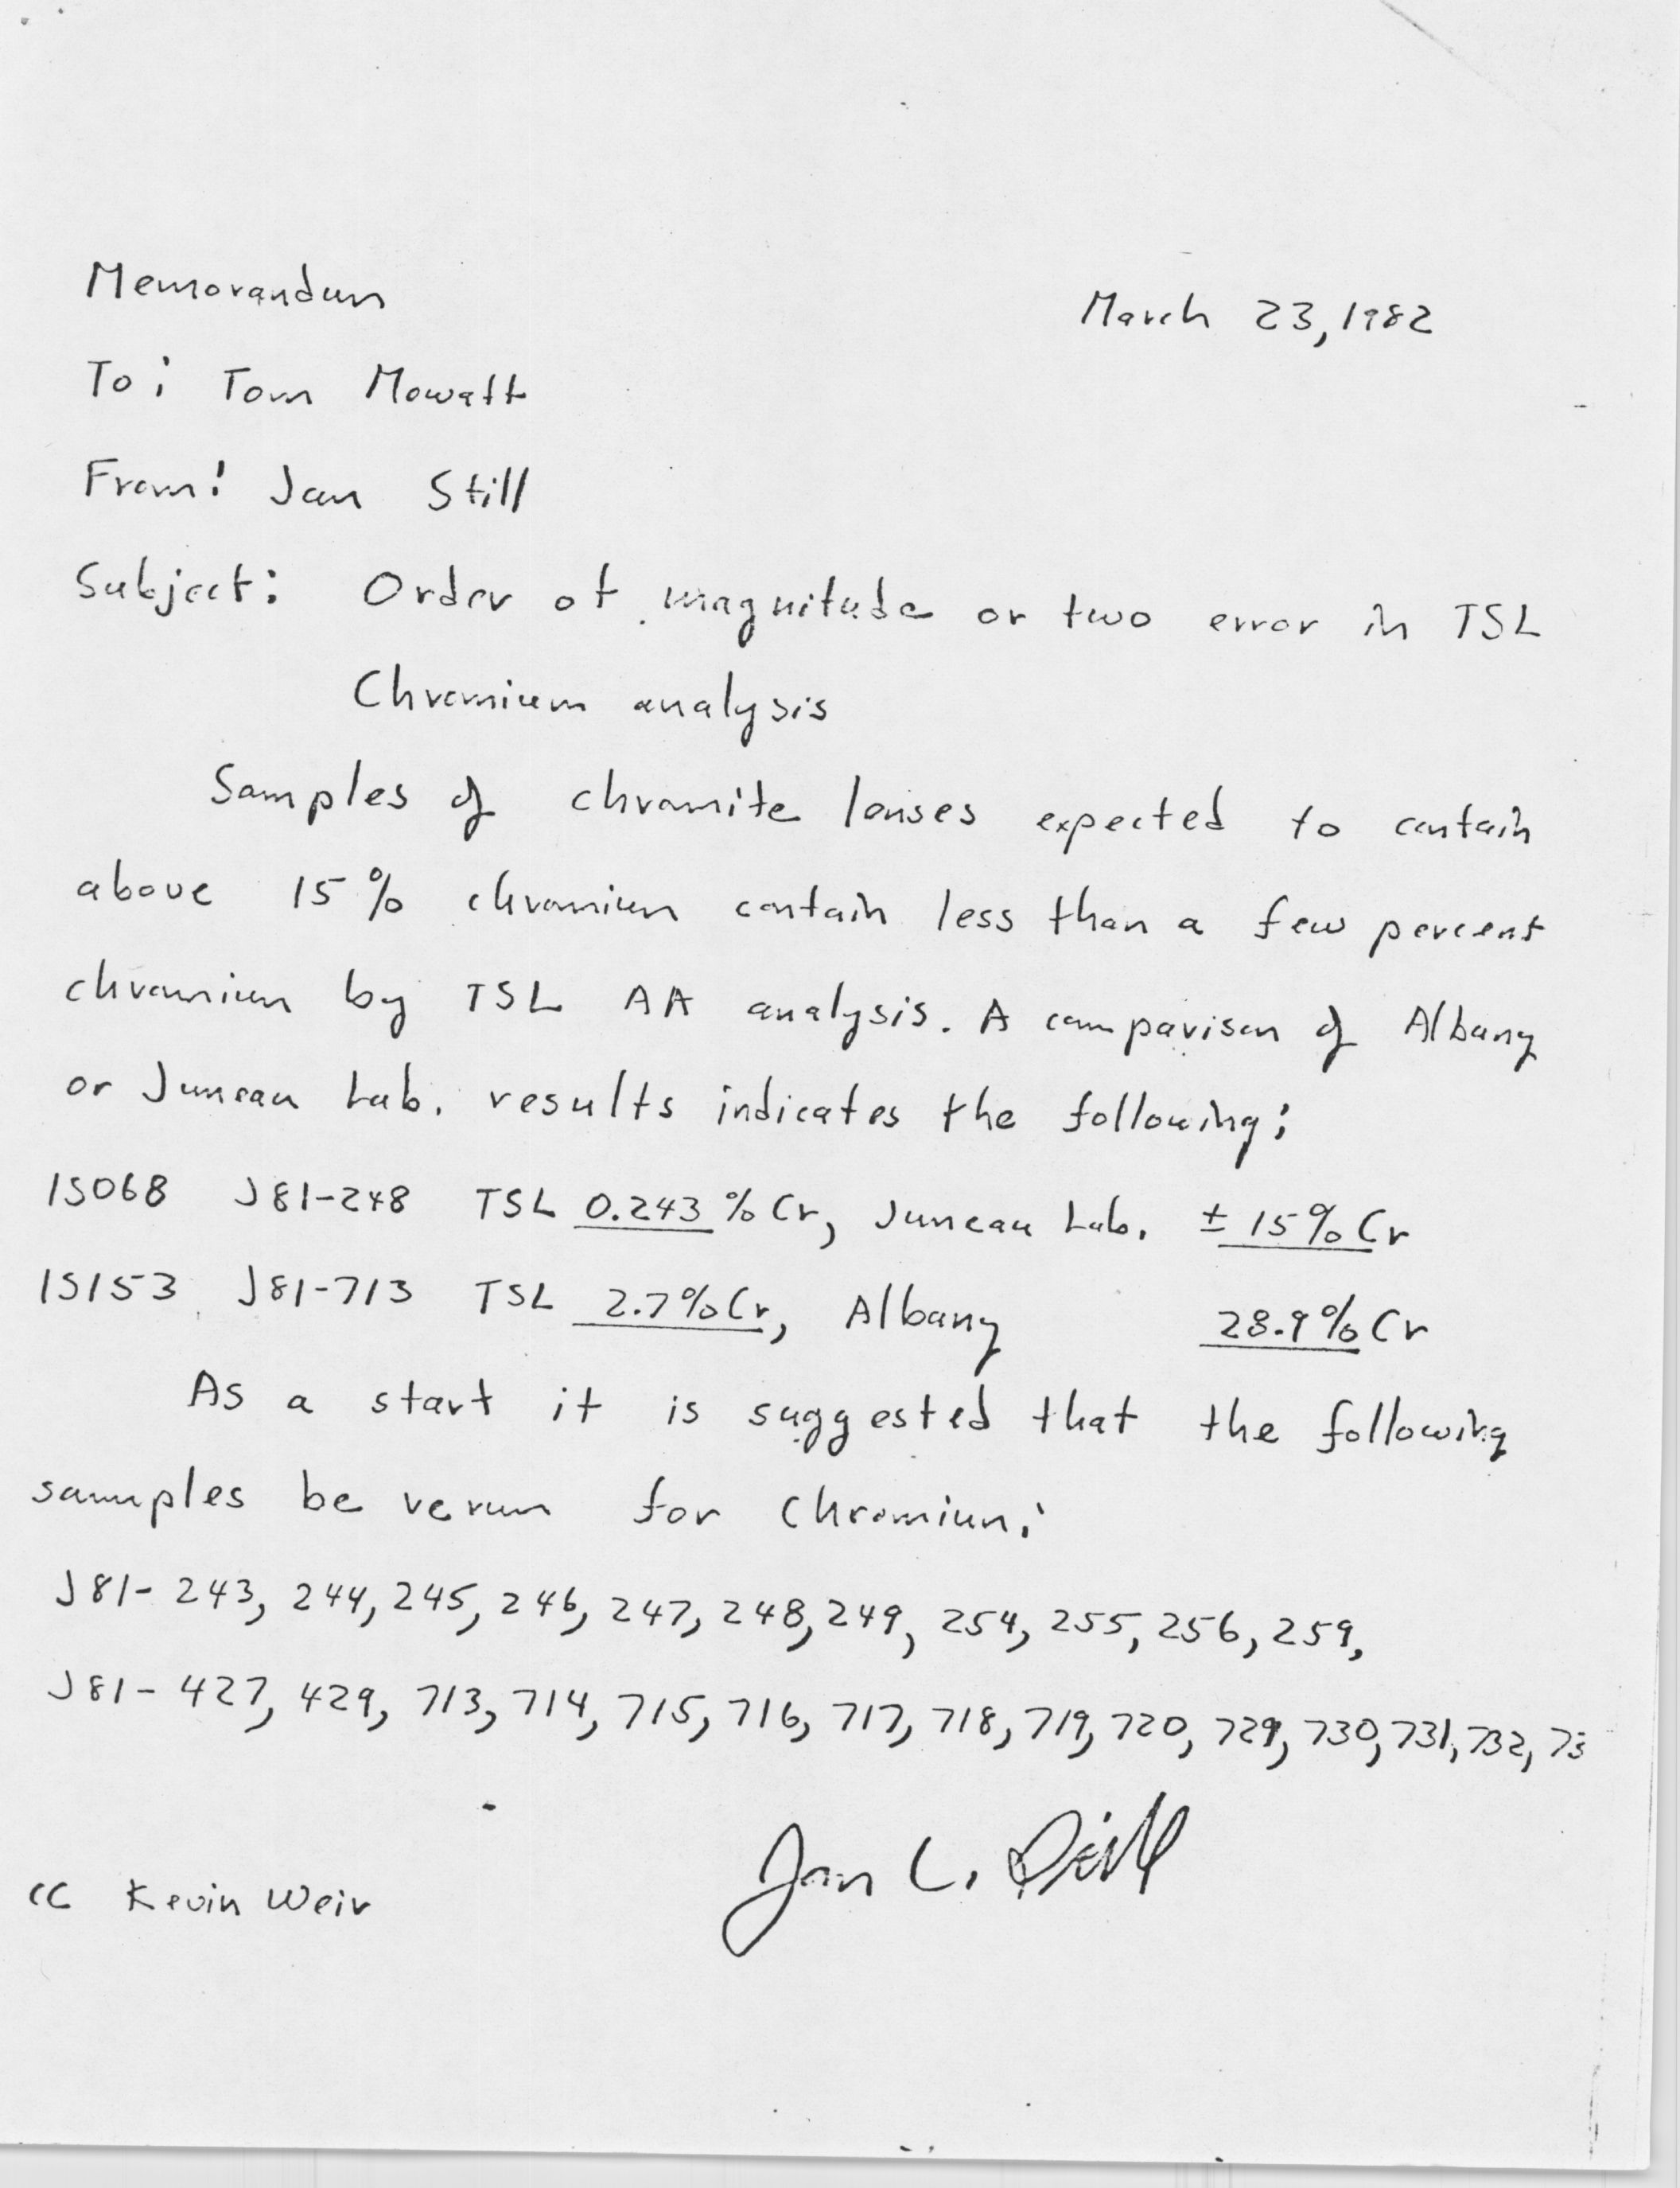 Memorandum
March 23, 1982
To: Tom Mowatt
From: Jan Still
Subject: Order of magnitude or two error in TSL
Chromium analysis
Samples of chromite lenses expected to contain
above 15% chromium contain less than a few percent
chromium by TSL AA analysis. A comparison of Albany
or Juneau Lab. results indicates the following:
1S068 J81-248 TSL 0.243 % Cr, Juneau Lab. ± 15% Cr
1S153 J81-713 TSL 2.7% Cr, Albany 28.9% Cr
As a start it is suggested that the following
samples be rerun for Chromium:
J81- 243, 244, 245, 246, 247, 248, 249, 254, 255, 256, 259,
J81- 427, 429, 713, 714, 715, 716, 717, 718, 719, 720, 729, 730, 731, 732,
Jan C. Still
cc Kevin Weir